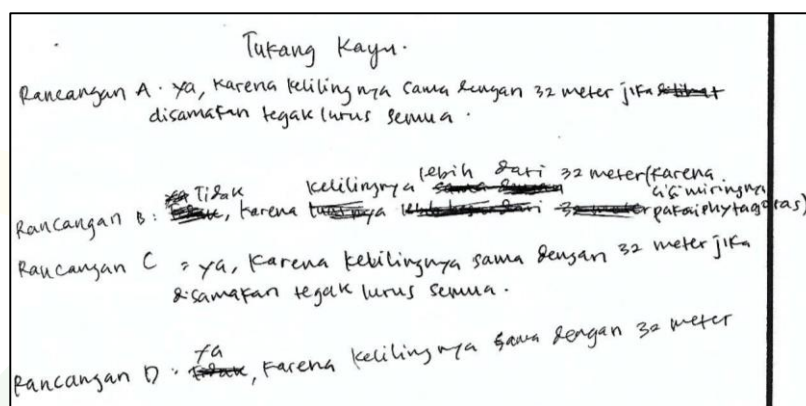 Tukang Kayu.
Rancangan A. ya, karena kelilingnya sama dengan 32 meter jika
disamakan tegak lurus semua.
Rancangan B: Tidak, karena kelilingnya lebih dari 32 meter (karena
sisi miringnya
pakai phytagoras)
Rancangan C = ya, karena kelilingnya sama dengan 32 meter jika
disamakan tegak lurus semua.
Rancangan D. ya, karena kelilingnya sama dengan 32 meter